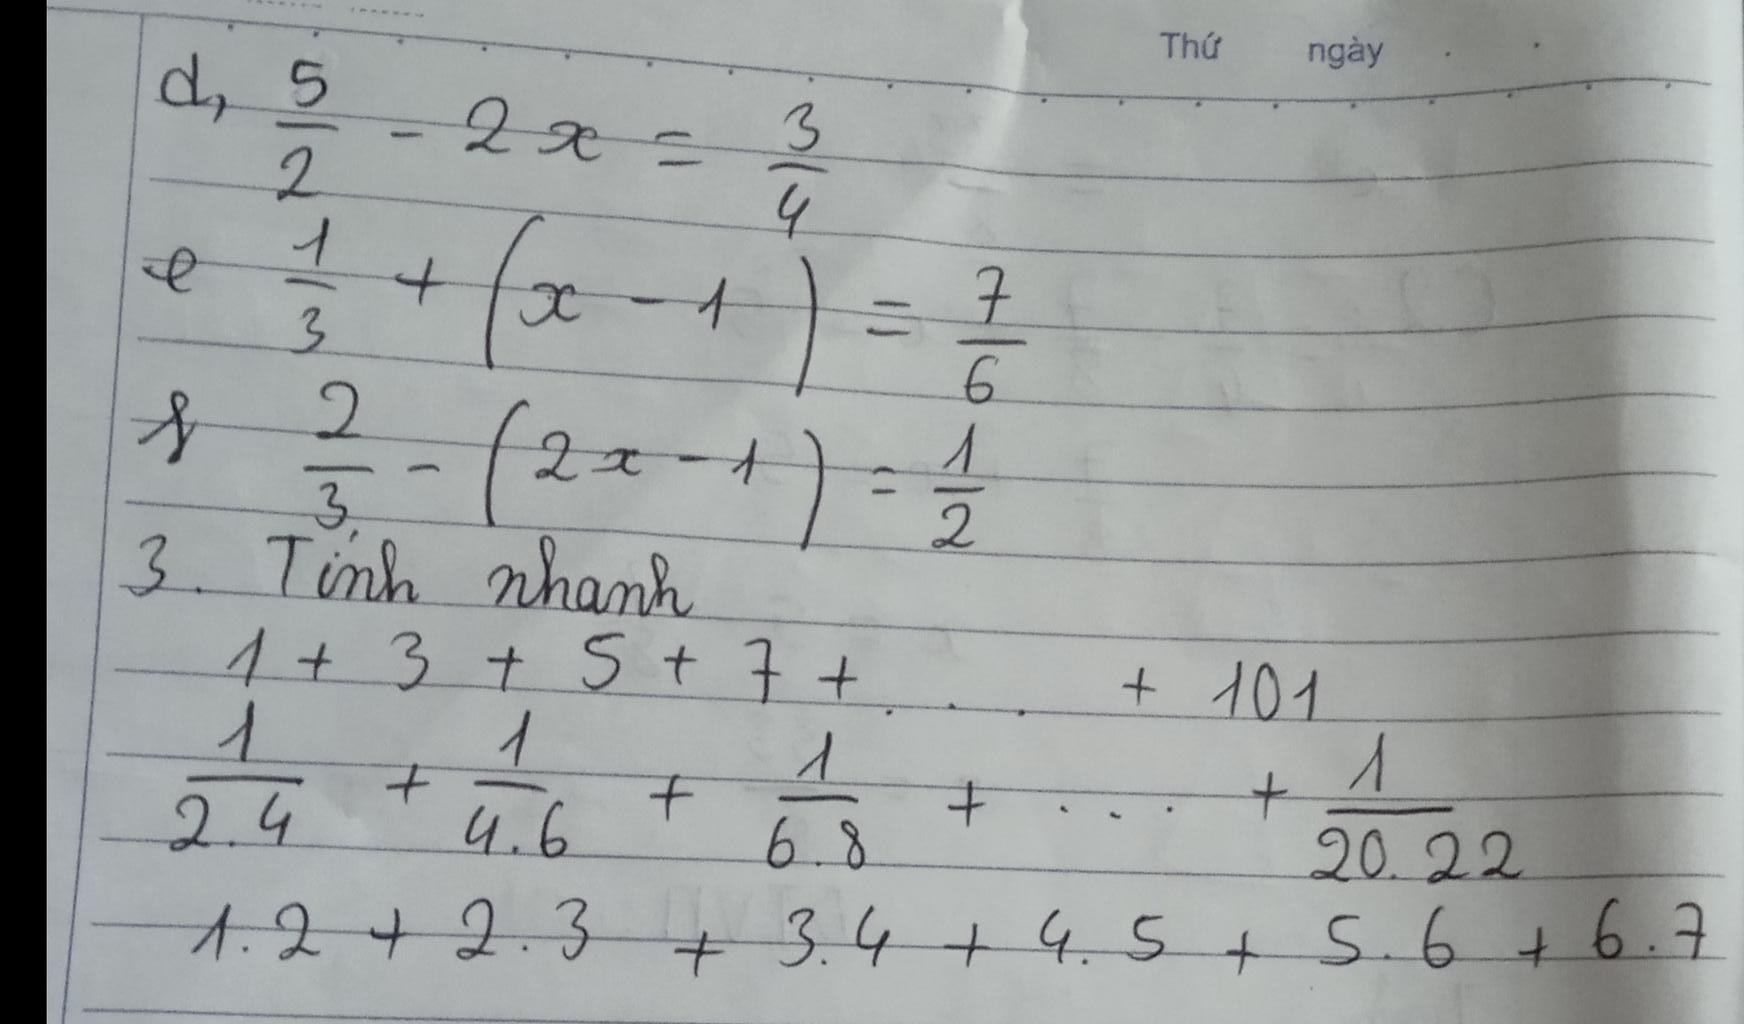 Thứ ngày
d, 5/2 - 2x = 3/4
e 1/3 + (x - 1) = 7/6
f 2/3 - (2x - 1) = 1/2
3. Tính nhanh
1 + 3 + 5 + 7 + . . . + 101
1/2.4 + 1/4.6 + 1/6.8 + ... + 1/20.22
1.2 + 2.3 + 3.4 + 4.5 + 5.6 + 6.7